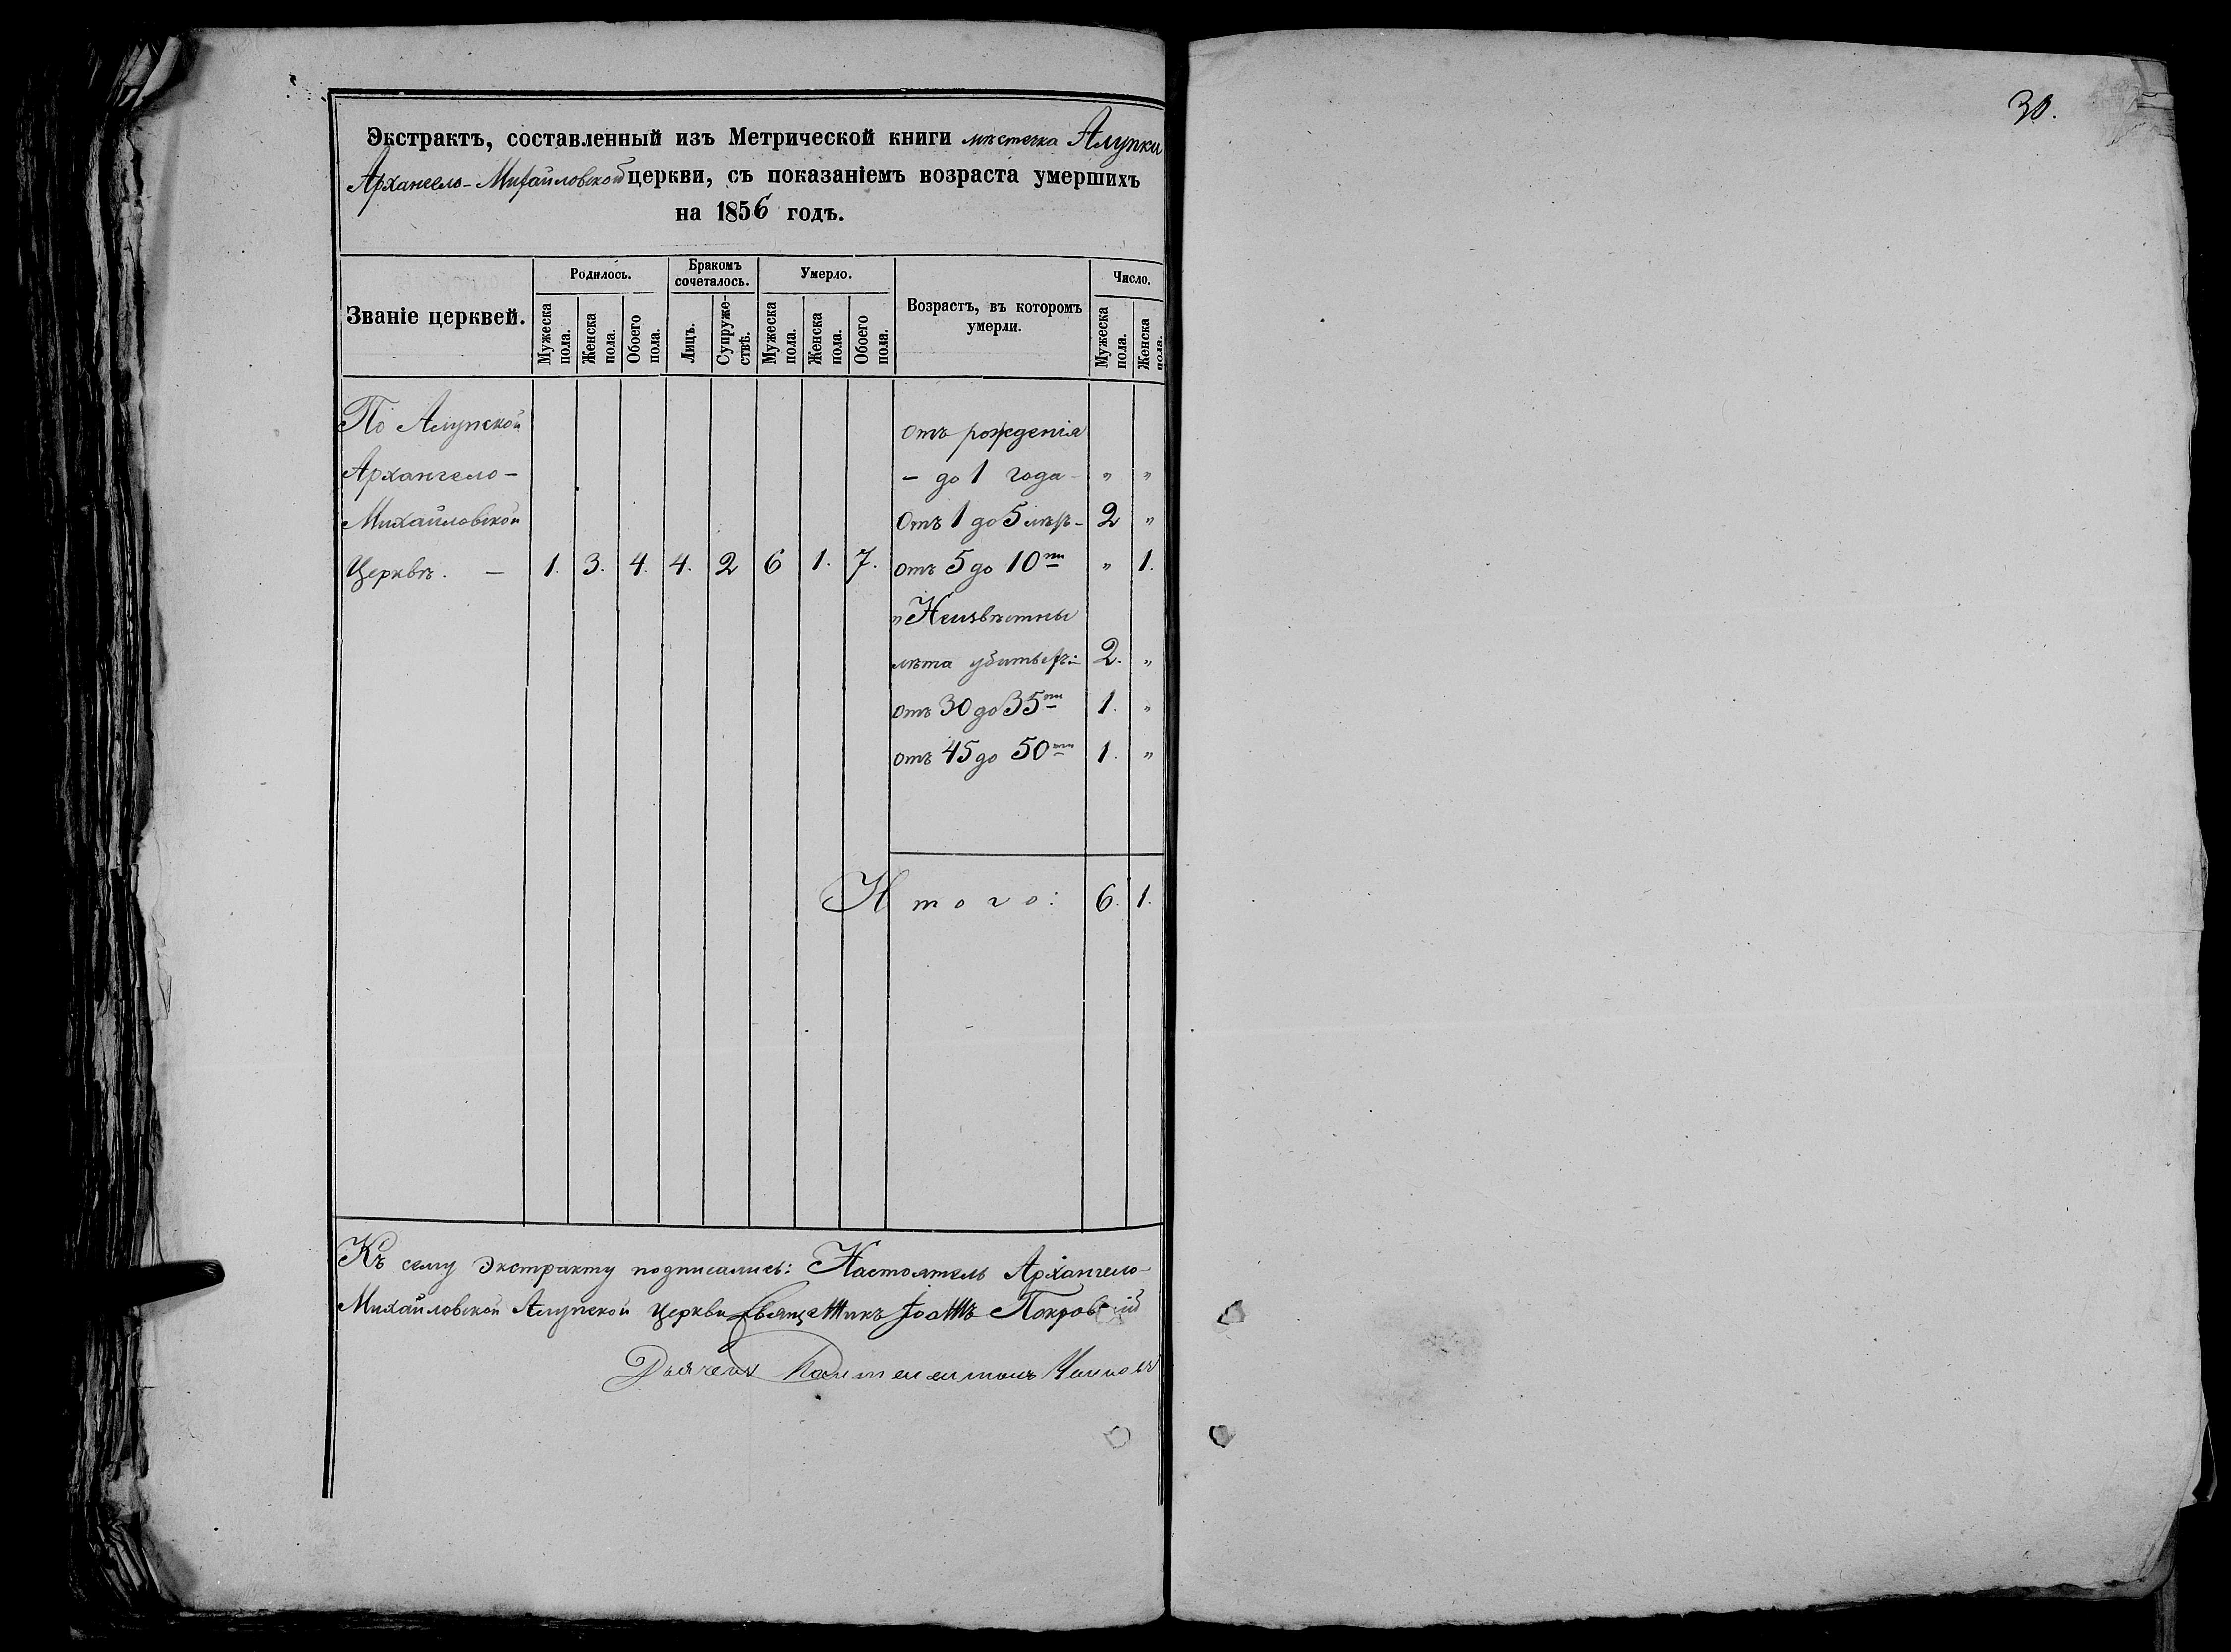 Экстрактъ, составленный изъ Метрической книги мѣстечка Алупки
Архангело-Михайловской церкви, съ показаніемъ возраста умершихъ
на 1856 годъ.
Званіе церквей.
Родилось.
Бракомъ сочеталось.
Умерло.
Возрастъ, въ которомъ умерли.
Число.
Мужеска пола.
Женска пола.
Обоего пола.
Лицъ.
Супружествъ.
Мужеска пола.
Женска пола.
Обоего пола.
Мужеска пола.
Женска пола.
По Алупской отъ рожденія
Архангело- - до 1 года - " "
Михайловской Отъ 1 до 5 лѣтъ - 2 "
Церквѣ. - 1. 3. 4. 4. 2 6 1. 7. отъ 5 до 10ти " 1.
" Неизвѣстны
лѣта убитыхъ: 2. "
отъ 30 до 35ти 1. "
отъ 45 до 50ти 1. "
Итого: 6. 1.
Къ сему Экстракту подписались: Настоятель Архангело-
Михайловской Алупской Церкви Священникъ Іоаннъ Покровскій
Дьячекъ
30.